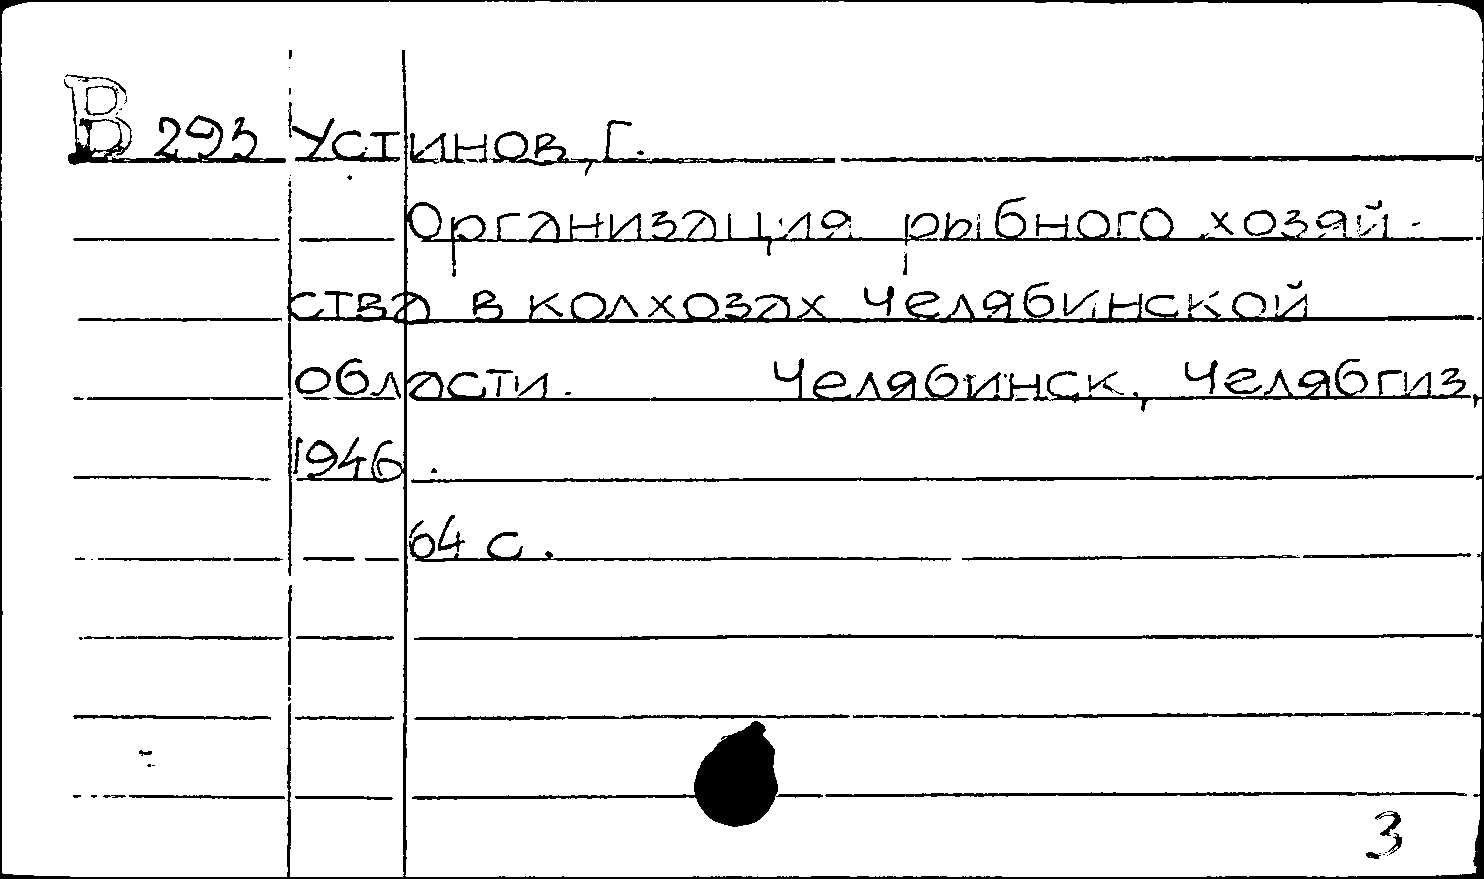 В 293 Устинов, Г.
Организация рыбного хозяй-
ства в колхозах Челябинской
области. Челябинск, Челябгиз,
1946.
64 с.
3